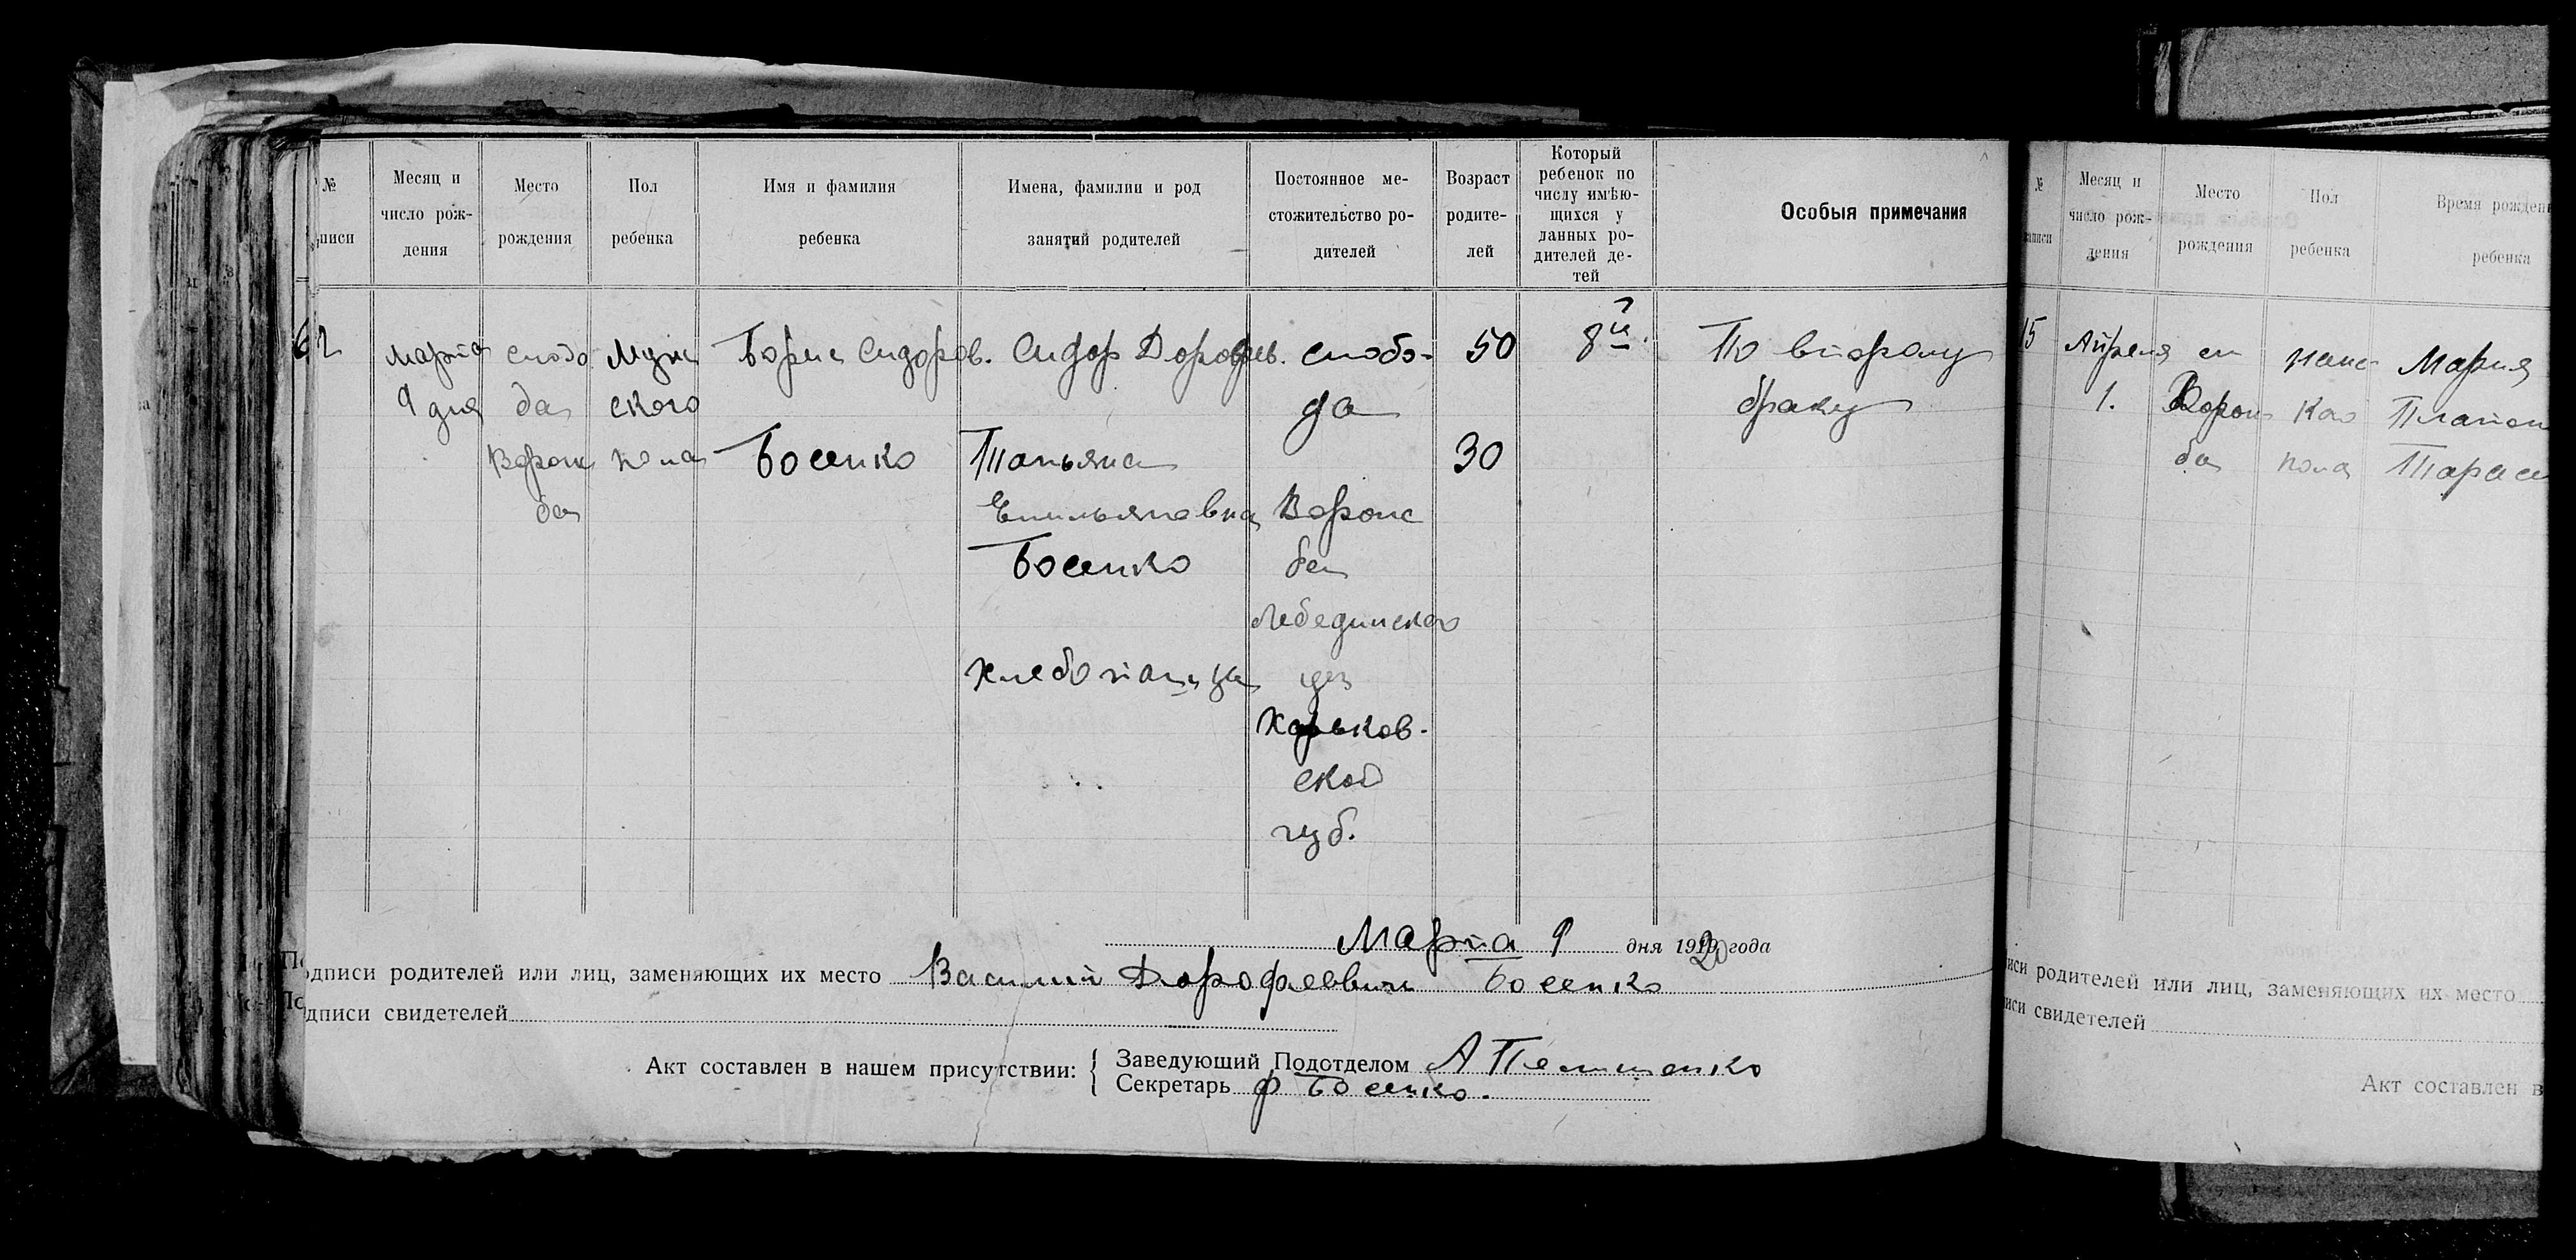 № записи
Месяц и число рождения
Место рождения
Пол ребенка
Имя и фамилия ребенка
Имена, фамилии и род занятий родителей
Постоянное местожительство родителей
Возраст родителей
Который ребенок по числу имѣющихся у данных родителей детей
Особыя примечания
62
марта
9 дня
слобо
да
Ворож
ба
Муж
ского
пола
Борис Сидоров.
Босенко
Сидор Дорофеев.
Татьяна
Емельяновна
Босенко
хлебопашцы
слобо-
да
Ворож
ба
Лебединского
уез
Харьков-
ской
губ.
50
30
8й
По второму
браку
Марта 9 дня 1920 года
Подписи родителей или лиц, заменяющих их место Василий Дорофеевич Босенко
Подписи свидетелей
Акт составлен в нашем присутствии:
Заведующий Подотделом А
Секретарь Ф Босенко.
№
Месяц и число рождения
Место рождения
Пол ребенка
Время рождени
ребенка
15
Апреля
1.
сл
Ворож
ба
женс
каго
пола
Мария
Платон
Тарасе
иси родителей или лиц, заменяющих их место
иси свидетелей
Акт составлен в